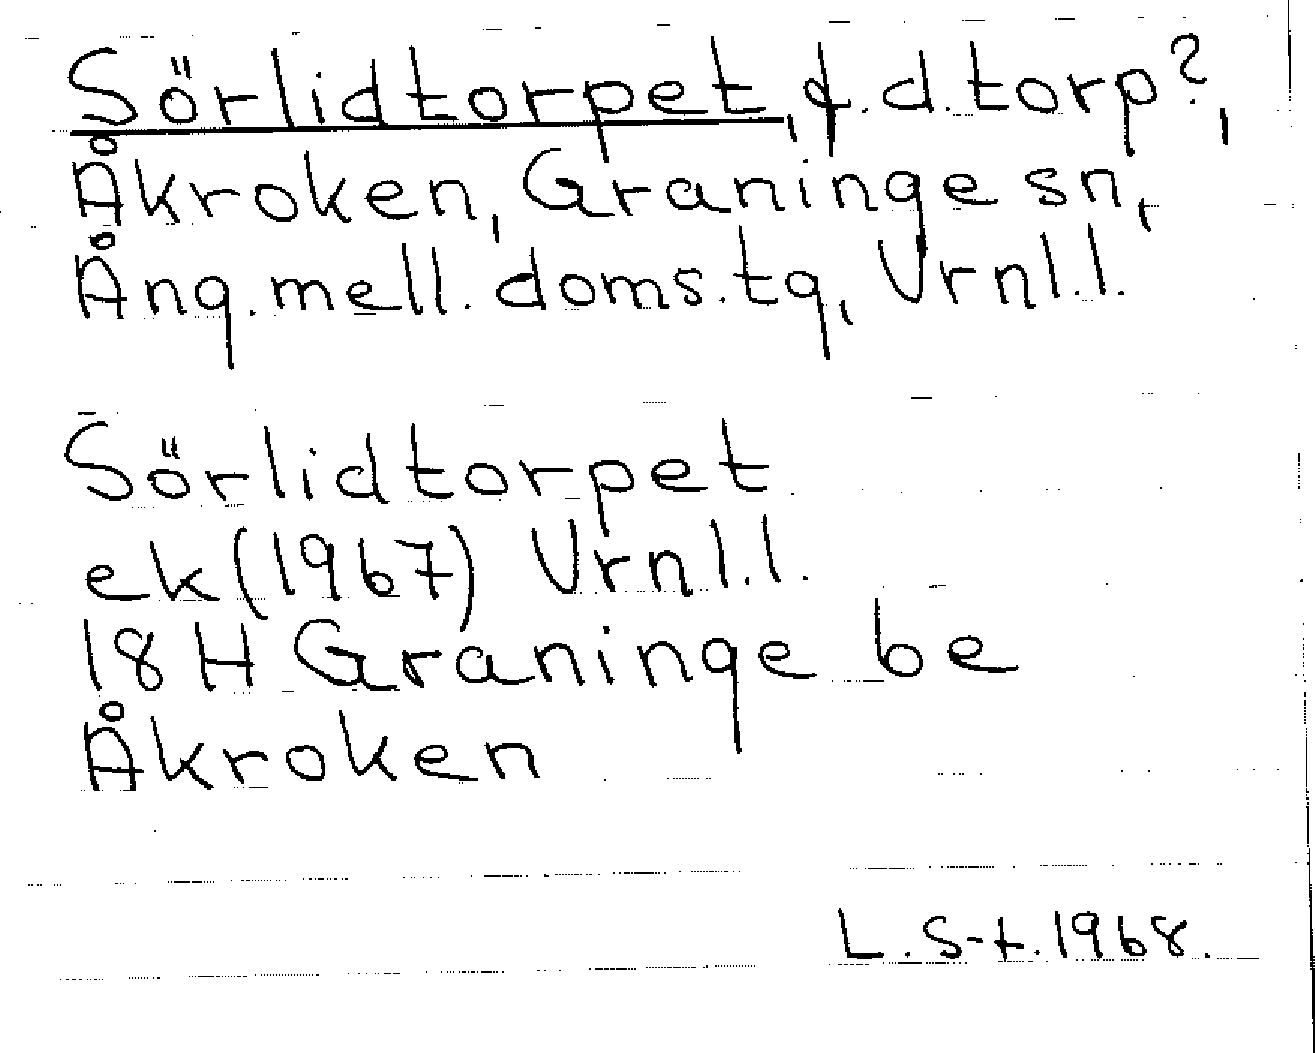 Sörlidtorpet, f.d. torp?,
Åkroken, Graninge sn,
Ång. mell. doms. tg, Vrnl.l.
Sörlidtorpet
ek (1967) Vrnl.l.
18 H Graninge be
Åkroken
L. S-t. 1968.